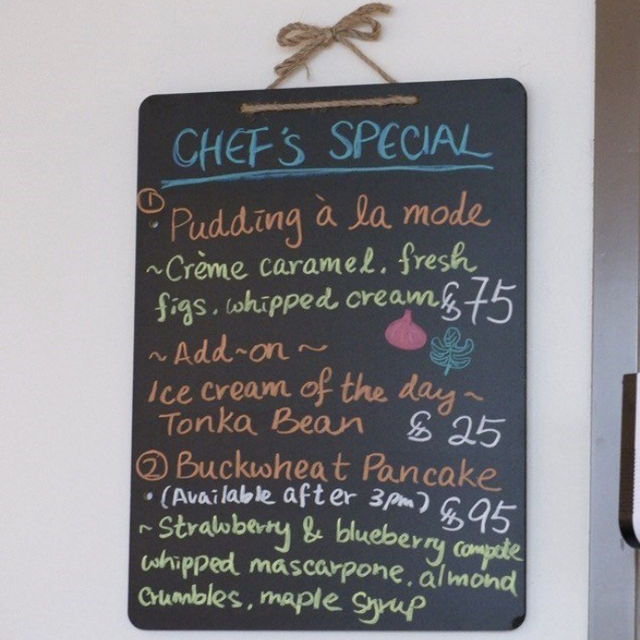 CHEF'S SPECIAL
① Pudding à la mode
~Crème caramel, fresh
figs, whipped cream $75
~Add~on~
Ice cream of the day~
Tonka Bean $ 25
② Buckwheat Pancake
• (Available after 3pm) $95
~Strawberry & blueberry compote
whipped mascarpone, almond
crumbles, maple syrup